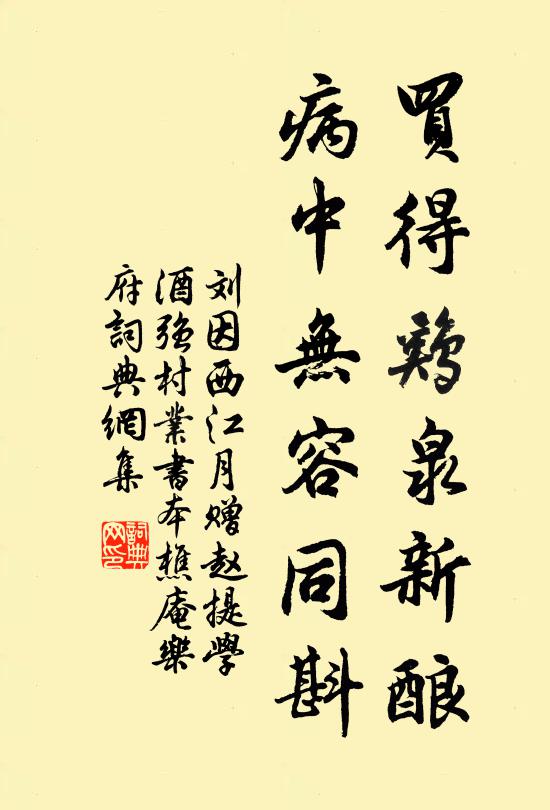 買得鷄泉新酿
病中無容同斟
刘因西江月赠赵提學
酒强村業書本樵庵樂
府詞典網集
詞典
网印